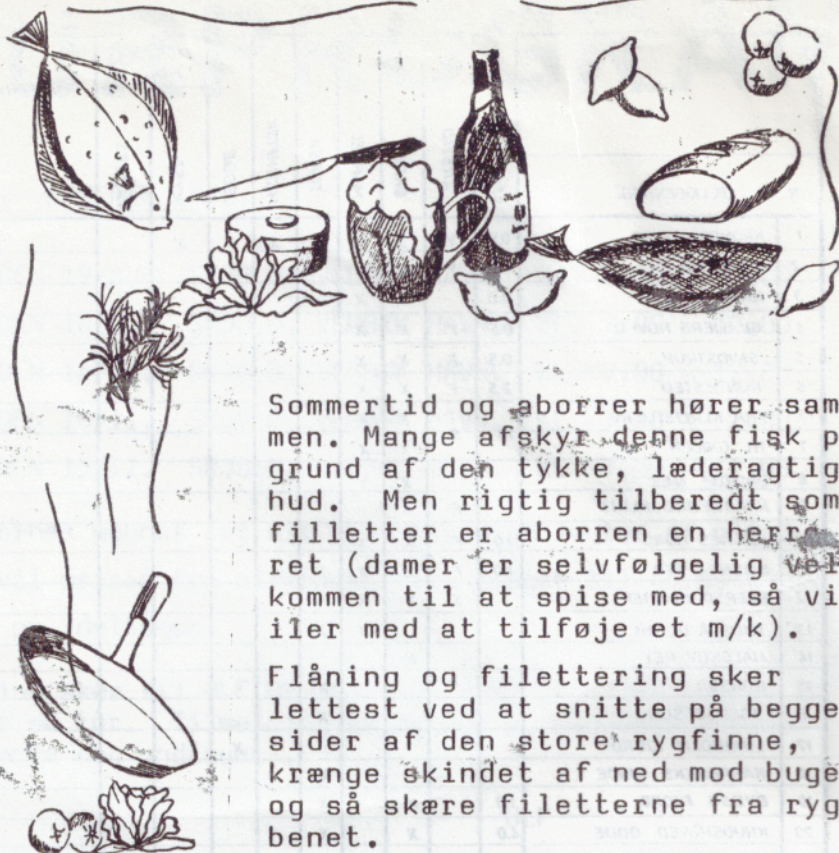 Sommertid og aborrer hører sam
men. Mange afskyr denne fisk p
grund af den tykke, læderagtig
hud. Men rigtig tilberedt som
filletter er aborren en herre
ret (damer er selvfølgelig vel
kommen til at spise med, så vi
iler med at tilføje et m/k).
Flåning og filettering sker
lettest ved at snitte på begge
sider af den store rygfinne,
krænge skindet af ned mod buge
og så skære filetterne fra ryg
benet.